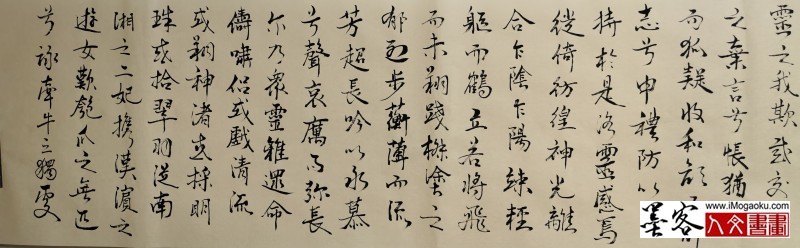 靈之我欺感交
之棄言兮悵猶
而狐疑收和顏
志兮申禮防以
持於是洛靈感焉
徙倚彷徨神光離
合乍陰乍陽竦輕
軀而鶴立若將飛
而未翔踐椒塗之
郁烈步蘅薄而流
芳超長吟以永慕
兮聲哀厲而彌長
尔乃眾靈雜遝命
儔嘯侶或戲清流
或翔神渚或採明
珠或拾翠羽從南
湘之二妃攜漢濱之
遊女歎匏瓜之無匹
兮詠牽牛之獨處
www.iMogaoku.com
墨客人文書畫